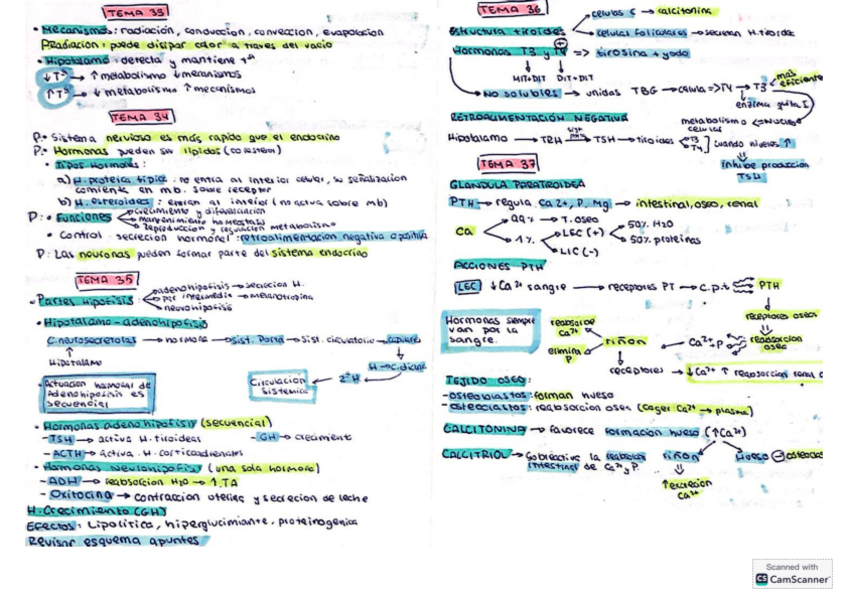 TEMA 33
• Mecanismos: radiación, conducción, convección, evaporación
Radiación: puede disipar calor a través del vacío
• Hipotálamo: detecta y mantiene Tª
↓Tª → ↑ metabolismo ↓ mecanismos
↑Tª → ↓ metabolismo ↑ mecanismos
TEMA 34
P: • Sistema nervioso es más rápido que el endocrino
P: • Hormonas pueden ser lípidos (colesterol)
• Tipos Hormonas:
a) H. proteica típica: no entra al interior celular, su señalización
comienza en mb. sobre receptor
b) H. esteroides: entran al interior (no activa sobre mb)
P: • Funciones
crecimiento y diferenciación
mantenimiento homeostasis
reproducción y regulación metabolismo
• Control secreción hormonal: retroalimentación negativa o positiva
P: Las neuronas pueden formar parte del sistema endocrino
TEMA 35
• Partes Hipófisis
adenohipófisis → secreción H.
par intermedia → melanotropina
neurohipófisis
• Hipotálamo - adenohipófisis
C. neurosecretoras → hormona → Sist. Porta → Sist. circulatorio → capilares
Hipotálamo
H → c. diana
2ª H
Circulación
Sistémica
• Actuación hormonal de
Adenohipófisis es
secuencial
• Hormonas adenohipófisis (secuencial)
- TSH → activa H. tiroideas
- GH → crecimiento
- ACTH → activa H. corticoadrenales
• Hormonas Neurohipófisis (una sola hormona)
- ADH → reabsorción H₂O → ↑TA
- Oxitocina → contracción uterina y secreción de leche
H. Crecimiento (GH)
Efectos: Lipolítica, hiperglucimiante, proteinogénica
Revisar esquema apuntes
TEMA 36
Estructura tiroides
células C → calcitonina
células foliculares → secretan H. tiroidea
Hormonas T3 y T4 => tirosina + yodo
MIT+DIT DIT+DIT
No solubles → unidas TBG → célula => T4 → T3
más eficiente
enzima quita I
metabolismo celular <= núcleo
RETROALIMENTACIÓN NEGATIVA
Hipotálamo → TRH → TSH → tiroides
T3
T4
cuando niveles ↑
inhibe producción
TSH
TEMA 37
GLÁNDULA PARATIROIDEA
PTH → regula Ca²⁺, P, Mg → intestinal, óseo, renal
Ca
99% → T. óseo
1%
LEC (+)
50% H2O
50% proteínas
LIC (-)
ACCIONES PTH
LEC ↓ Ca²⁺ sangre → receptores PT → c.p.t → PTH
receptores óseos
reabsorción
ósea
Ca²⁺, P
riñón
reabsorbe
Ca²⁺
elimina
P
receptores → ↓Ca²⁺ ↑ reabsorción renal
Hormonas siempre
van por la
sangre.
TEJIDO ÓSEO:
- osteoblastos: forman hueso
- osteoclastos: reabsorción ósea (coger Ca²⁺ → plasma)
CALCITONINA → favorece formación hueso (↑Ca²⁺)
riñón
↑ excreción
Ca²⁺
Hueso
CALCITRIOL → Sobreactiva la reabsorc.
intestinal de Ca²⁺ y P.
Scanned with
CS CamScanner